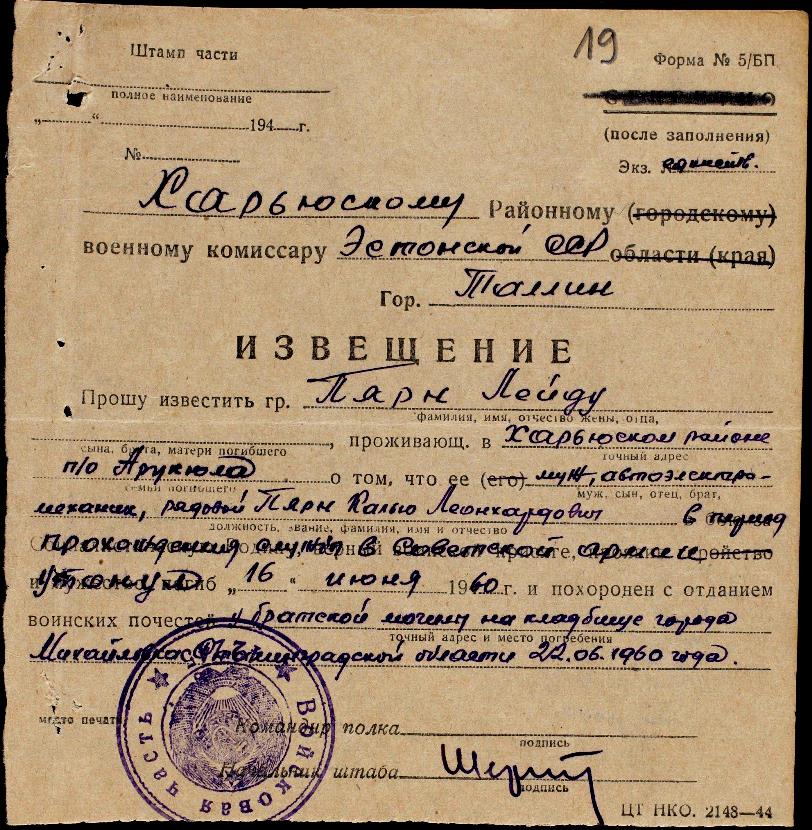 19
Штамп части
Форма № 5/БП
полное наименование
„ “ 194 г.
(после заполнения)
№
Экз. №
Харьюскому Районному (городскому)
военному комиссару Эстонской ССР области (края)
Гор. Таллин
ИЗВЕЩЕНИЕ
Прошу известить гр. Пярн Лейду
фамилия, имя, отчество жены, отца,
, проживающ. в Харьюском районе
сына, брата, матери погибшего
точный адрес
п/о Арукюла о том, что ее (его) муж, автоэлектро-
семьи погибшего
муж, сын, отец, брат,
механик, рядовой Пярн Калью Леонхардович в период
должность, звание, фамилия, имя и отчество
прохождения службы в Советской армии
утонул погиб „16“ июня 1960 г. и похоронен с отданием
воинских почестей у братской могилы на кладбище города
точный адрес и место погребения
Михайловка Сталинградской области 22.06.1960 года.
место печати
Командир полка
подпись
Начальник штаба
подпись
Войсковая часть
ЦТ НКО. 2148—44